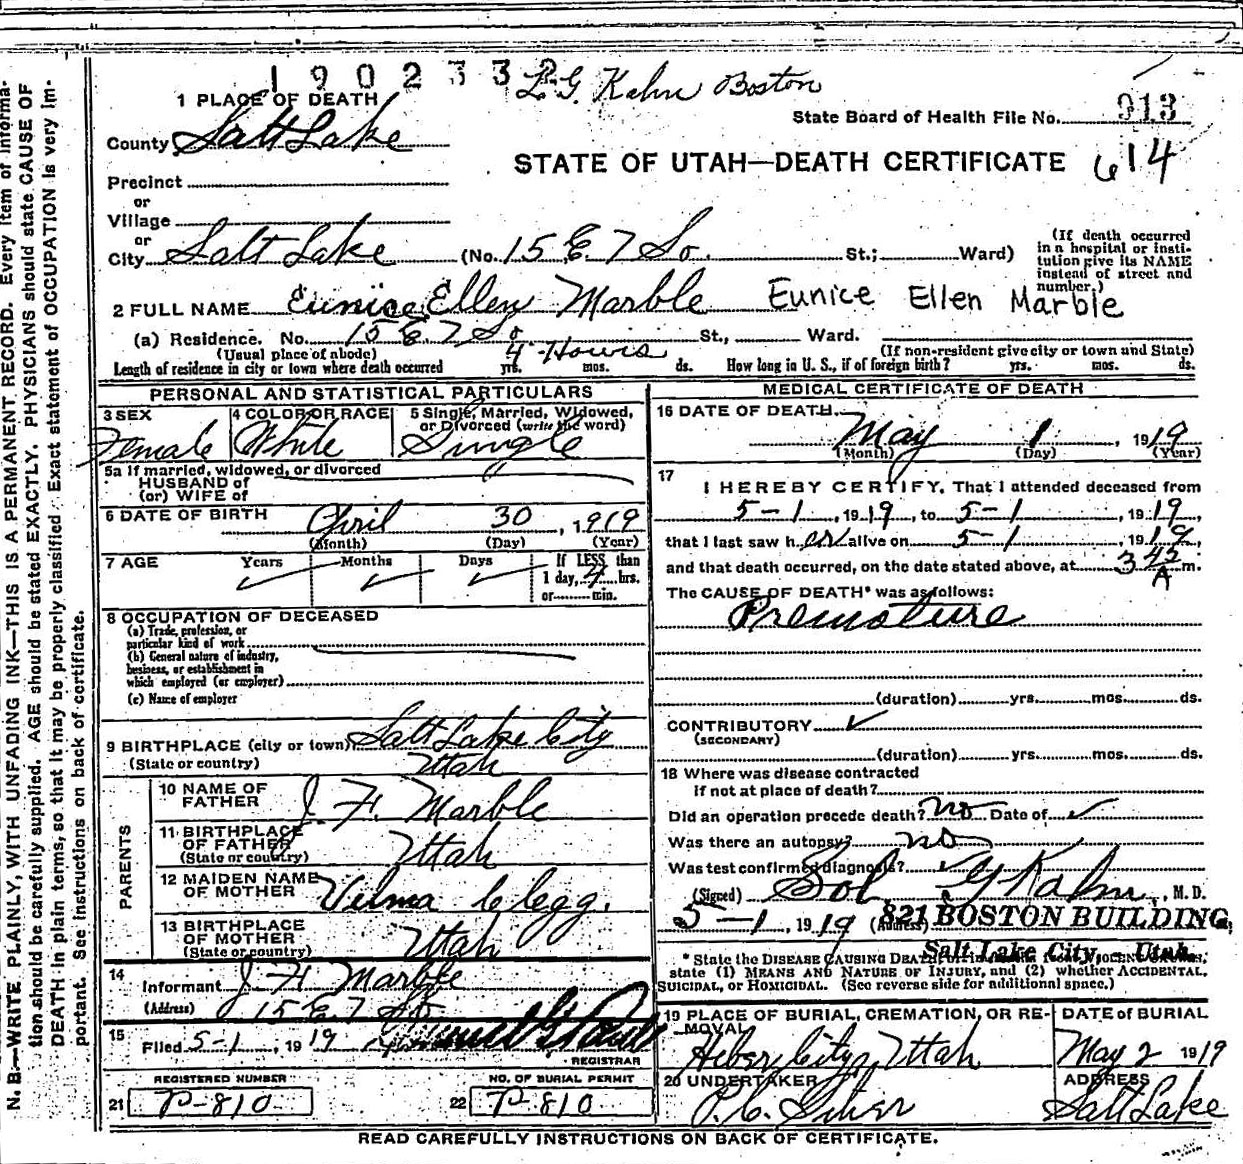 1902332
L. G. Kahn Boston
1 PLACE OF DEATH
County Salt Lake
State Board of Health File No. 913
STATE OF UTAH—DEATH CERTIFICATE 614
Precinct
or
Village
or
City Salt Lake (No. 15 E. 7 So. St.; Ward)
(If death occurred
in a hospital or insti-
tution give its NAME
instead of street and
number.)
2 FULL NAME Eunice Ellen Marble Eunice Ellen Marble
(a) Residence. No. 15 E. 7 So St., Ward.
(Usual place of abode) (If non-resident give city or town and State)
Length of residence in city or town where death occurred 4 Hours yrs. mos. ds. How long in U. S., if of foreign birth? yrs. mos. ds.
PERSONAL AND STATISTICAL PARTICULARS
3 SEX Female
4 COLOR OR RACE White
5 Single, Married, Widowed,
or Divorced (write the word)
Single
5a If married, widowed, or divorced
HUSBAND of
(or) WIFE of
6 DATE OF BIRTH April 30, 1919
(Month) (Day) (Year)
7 AGE Years Months Days If LESS than
1 day, 4 hrs.
or min.
8 OCCUPATION OF DECEASED
(a) Trade, profession, or
particular kind of work
(b) General nature of industry,
business, or establishment in
which employed (or employer)
(c) Name of employer
9 BIRTHPLACE (city or town) Salt Lake City
(State or country) Utah
PARENTS
10 NAME OF
FATHER J. H. Marble
11 BIRTHPLACE
OF FATHER
(State or country) Utah
12 MAIDEN NAME
OF MOTHER Velma Clegg.
13 BIRTHPLACE
OF MOTHER
(State or country) Utah
14
Informant J H Marble
(Address) 15 E 7 So
15
Filed 5-1, 1919
REGISTRAR
REGISTERED NUMBER
21 P-810
NO. OF BURIAL PERMIT
22 P-810
MEDICAL CERTIFICATE OF DEATH
16 DATE OF DEATH
May 1, 1919
(Month) (Day) (Year)
17
I HEREBY CERTIFY, That I attended deceased from
5-1, 1919, to 5-1, 1919,
that I last saw h er alive on 5-1, 1919,
and that death occurred, on the date stated above, at 3 45 A m.
The CAUSE OF DEATH* was as follows:
Premature
(duration) yrs. mos. ds.
CONTRIBUTORY
(SECONDARY)
(duration) yrs. mos. ds.
18 Where was disease contracted
if not at place of death?
Did an operation precede death? no Date of
Was there an autopsy? no
Was test confirmed diagnosis?
(Signed) Sol G Kahn, M. D.
5-1, 1919 (Address) 821 BOSTON BUILDING,
Salt Lake City, Utah.
* State the DISEASE CAUSING DEATH
state (1) MEANS AND NATURE OF INJURY, and (2) whether ACCIDENTAL,
SUICIDAL, or HOMICIDAL. (See reverse side for additional space.)
19 PLACE OF BURIAL, CREMATION, OR RE-
MOVAL
Heber City, Utah
DATE of BURIAL
May 2 1919
20 UNDERTAKER
ADDRESS
Salt Lake
READ CAREFULLY INSTRUCTIONS ON BACK OF CERTIFICATE.
N. B.—WRITE PLAINLY, WITH UNFADING INK—THIS IS A PERMANENT RECORD. Every item of informa-
tion should be carefully supplied. AGE should be stated EXACTLY. PHYSICIANS should state CAUSE OF
DEATH in plain terms, so that it may be properly classified. Exact statement of OCCUPATION is very im-
portant. See instructions on back of certificate.